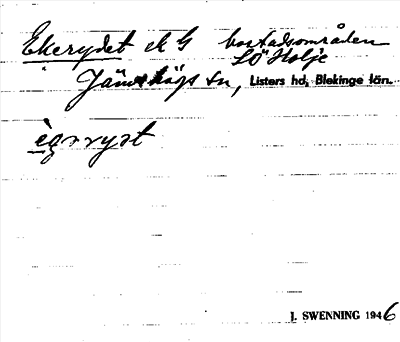 Ekerydet ek G bostadsområden
SÖ Holje
Jämshögs sn, Listers hd, Blekinge län.
ègərryət
J. SWENNING 1946